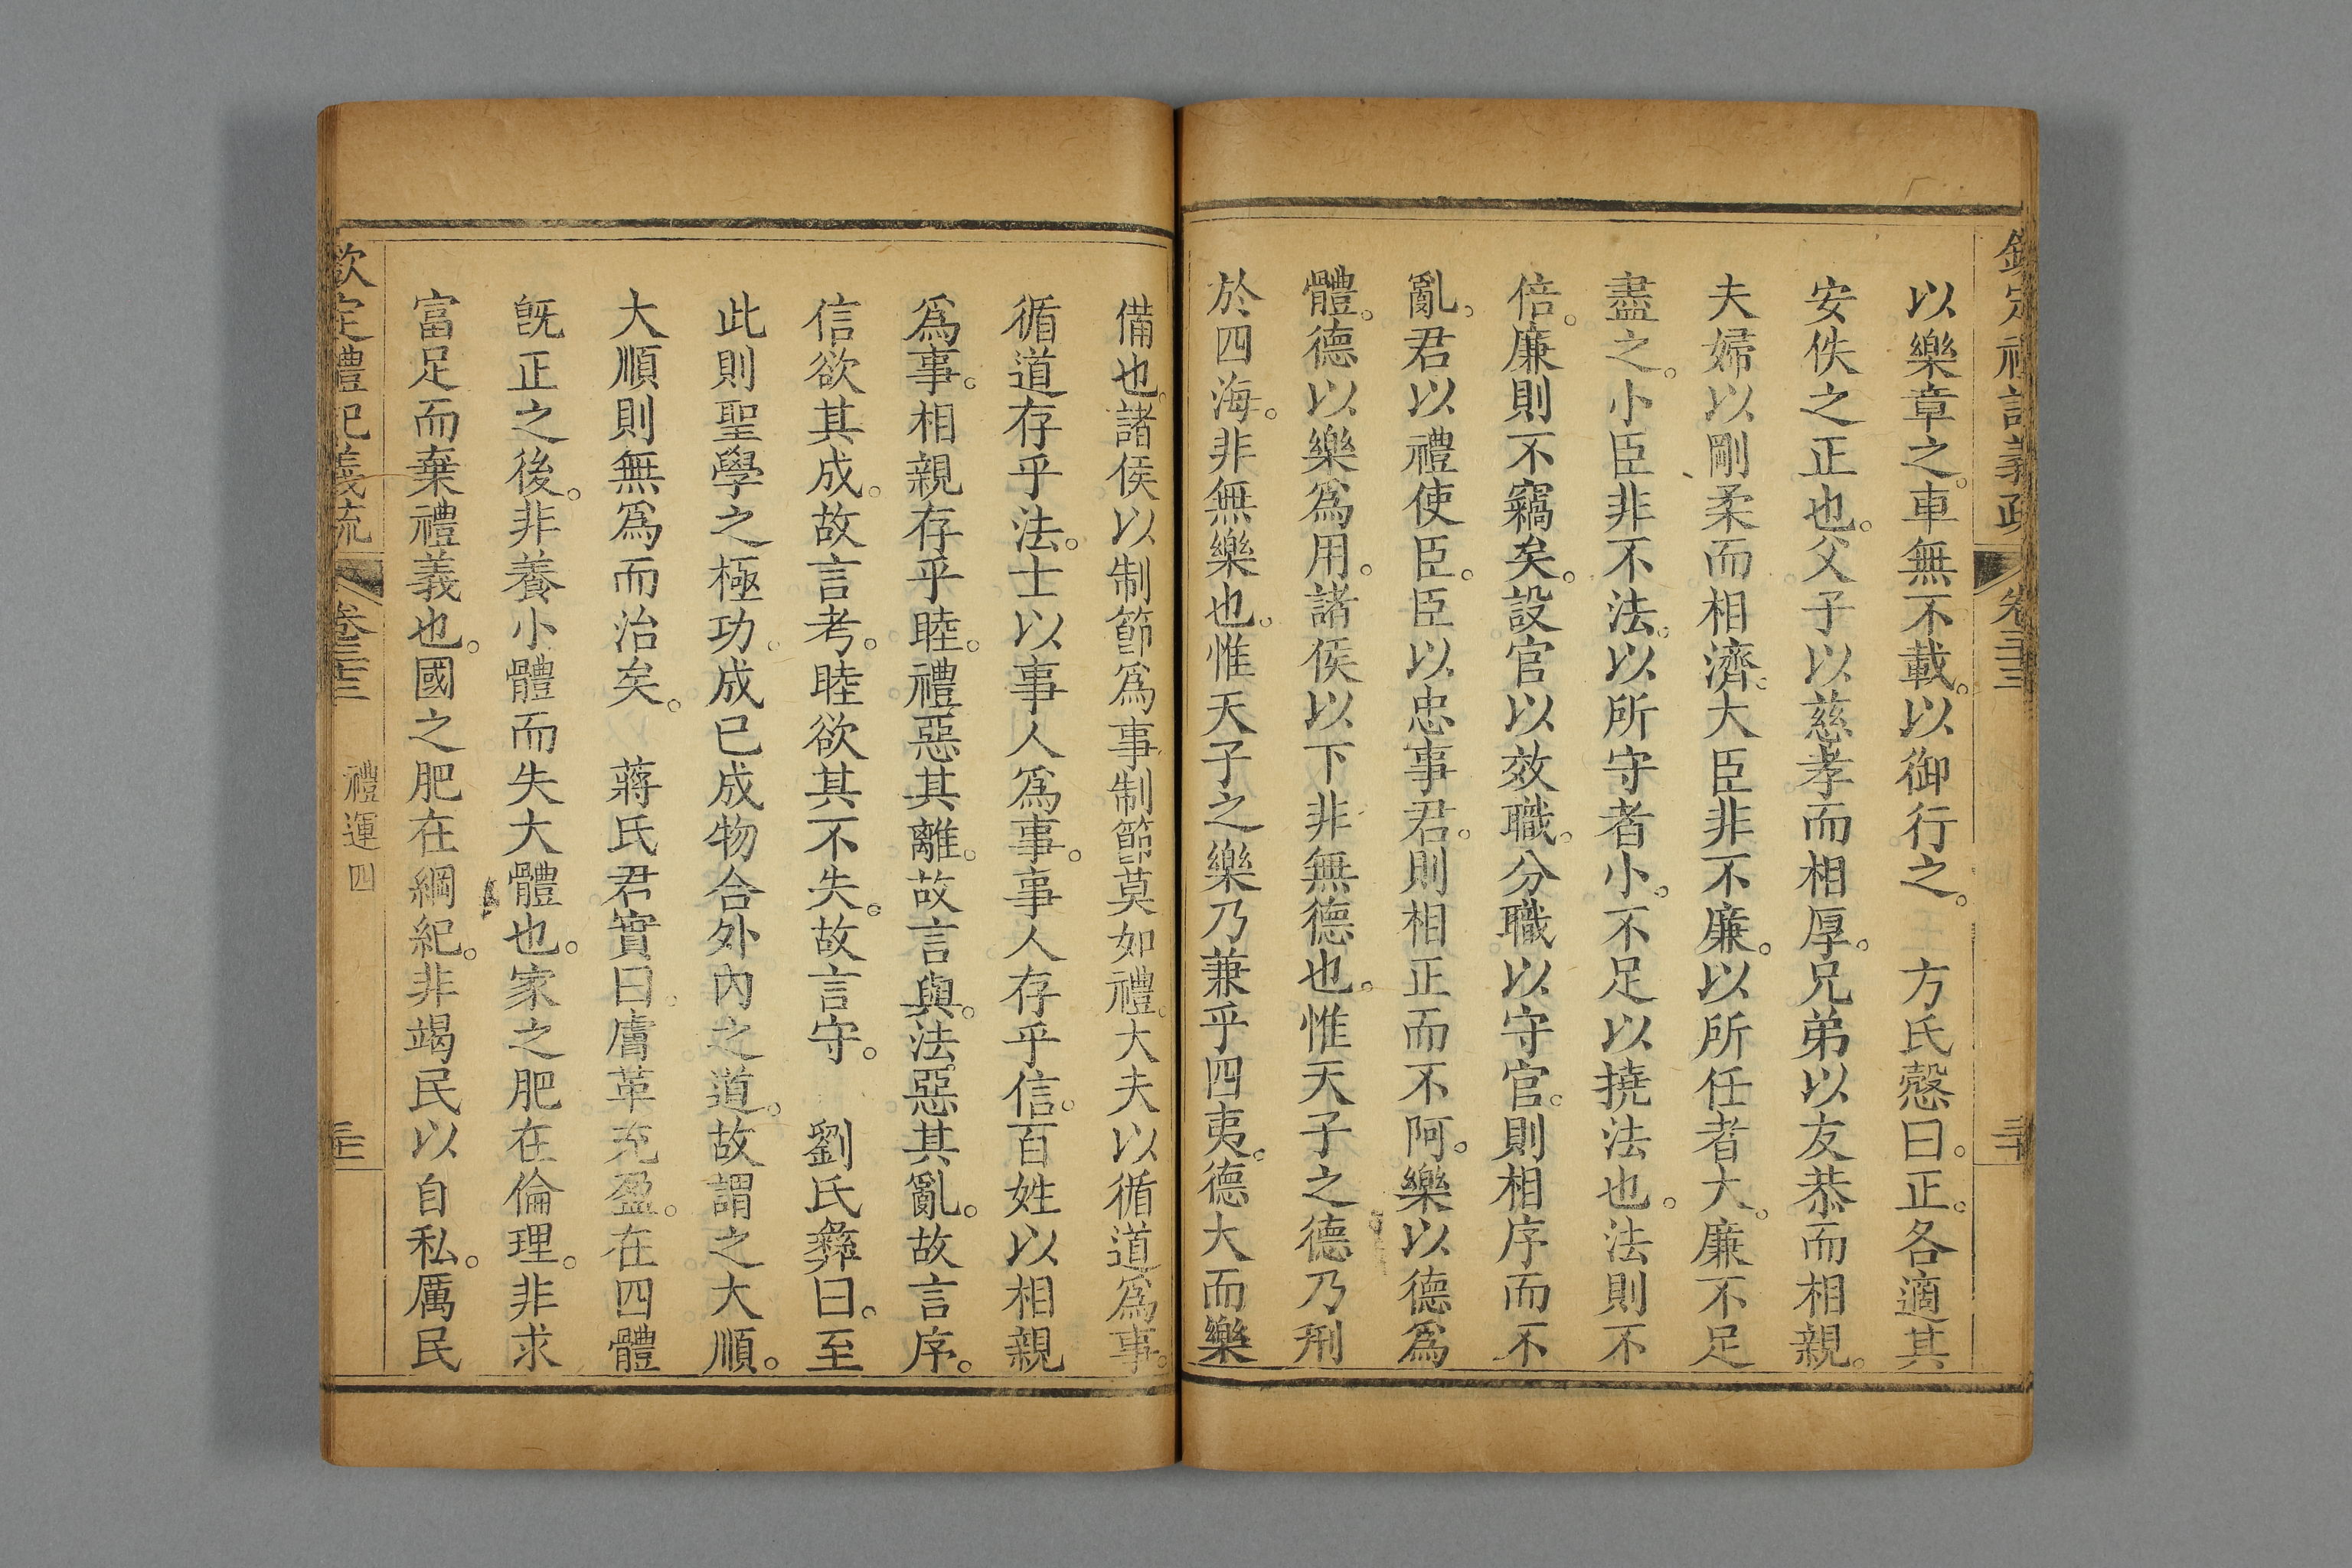 欽定禮記義疏 卷三十三 三十
以樂章之。車無不載。以御行之。 方氏慤曰。正。各適其
安佚之正也。父子以慈孝而相厚。兄弟以友恭而相親。
夫婦以剛柔而相濟。大臣非不廉。以所任者大。廉不足
盡之。小臣非不法。以所守者小。不足以撓法也。法則不
倍。廉則不竊矣。設官以效職。分職以守官。則相序而不
亂。君以禮使臣。臣以忠事君。則相正而不阿。樂以德爲
體。德以樂爲用。諸侯以下非無德也。惟天子之德乃刑
於四海。非無樂也。惟天子之樂乃兼乎四夷。德大而樂
備也。諸侯以制節爲事制節莫如禮。大夫以循道爲事。
循道存乎法。士以事人爲事。事人存乎信。百姓以相親
爲事。相親存乎睦。禮惡其離。故言與。法惡其亂。故言序。
信欲其成。故言考。睦欲其不失。故言守。 劉氏彝曰。至
此則聖學之極功。成已成物合外內之道。故謂之大順。
大順則無爲而治矣。 蔣氏君實曰。膚革充盈。在四體
旣正之後。非養小體而失大體也。家之肥在倫理。非求
富足而棄禮義也。國之肥在綱紀。非竭民以自私。厲民
欽定禮記義疏 卷三十三 禮運四